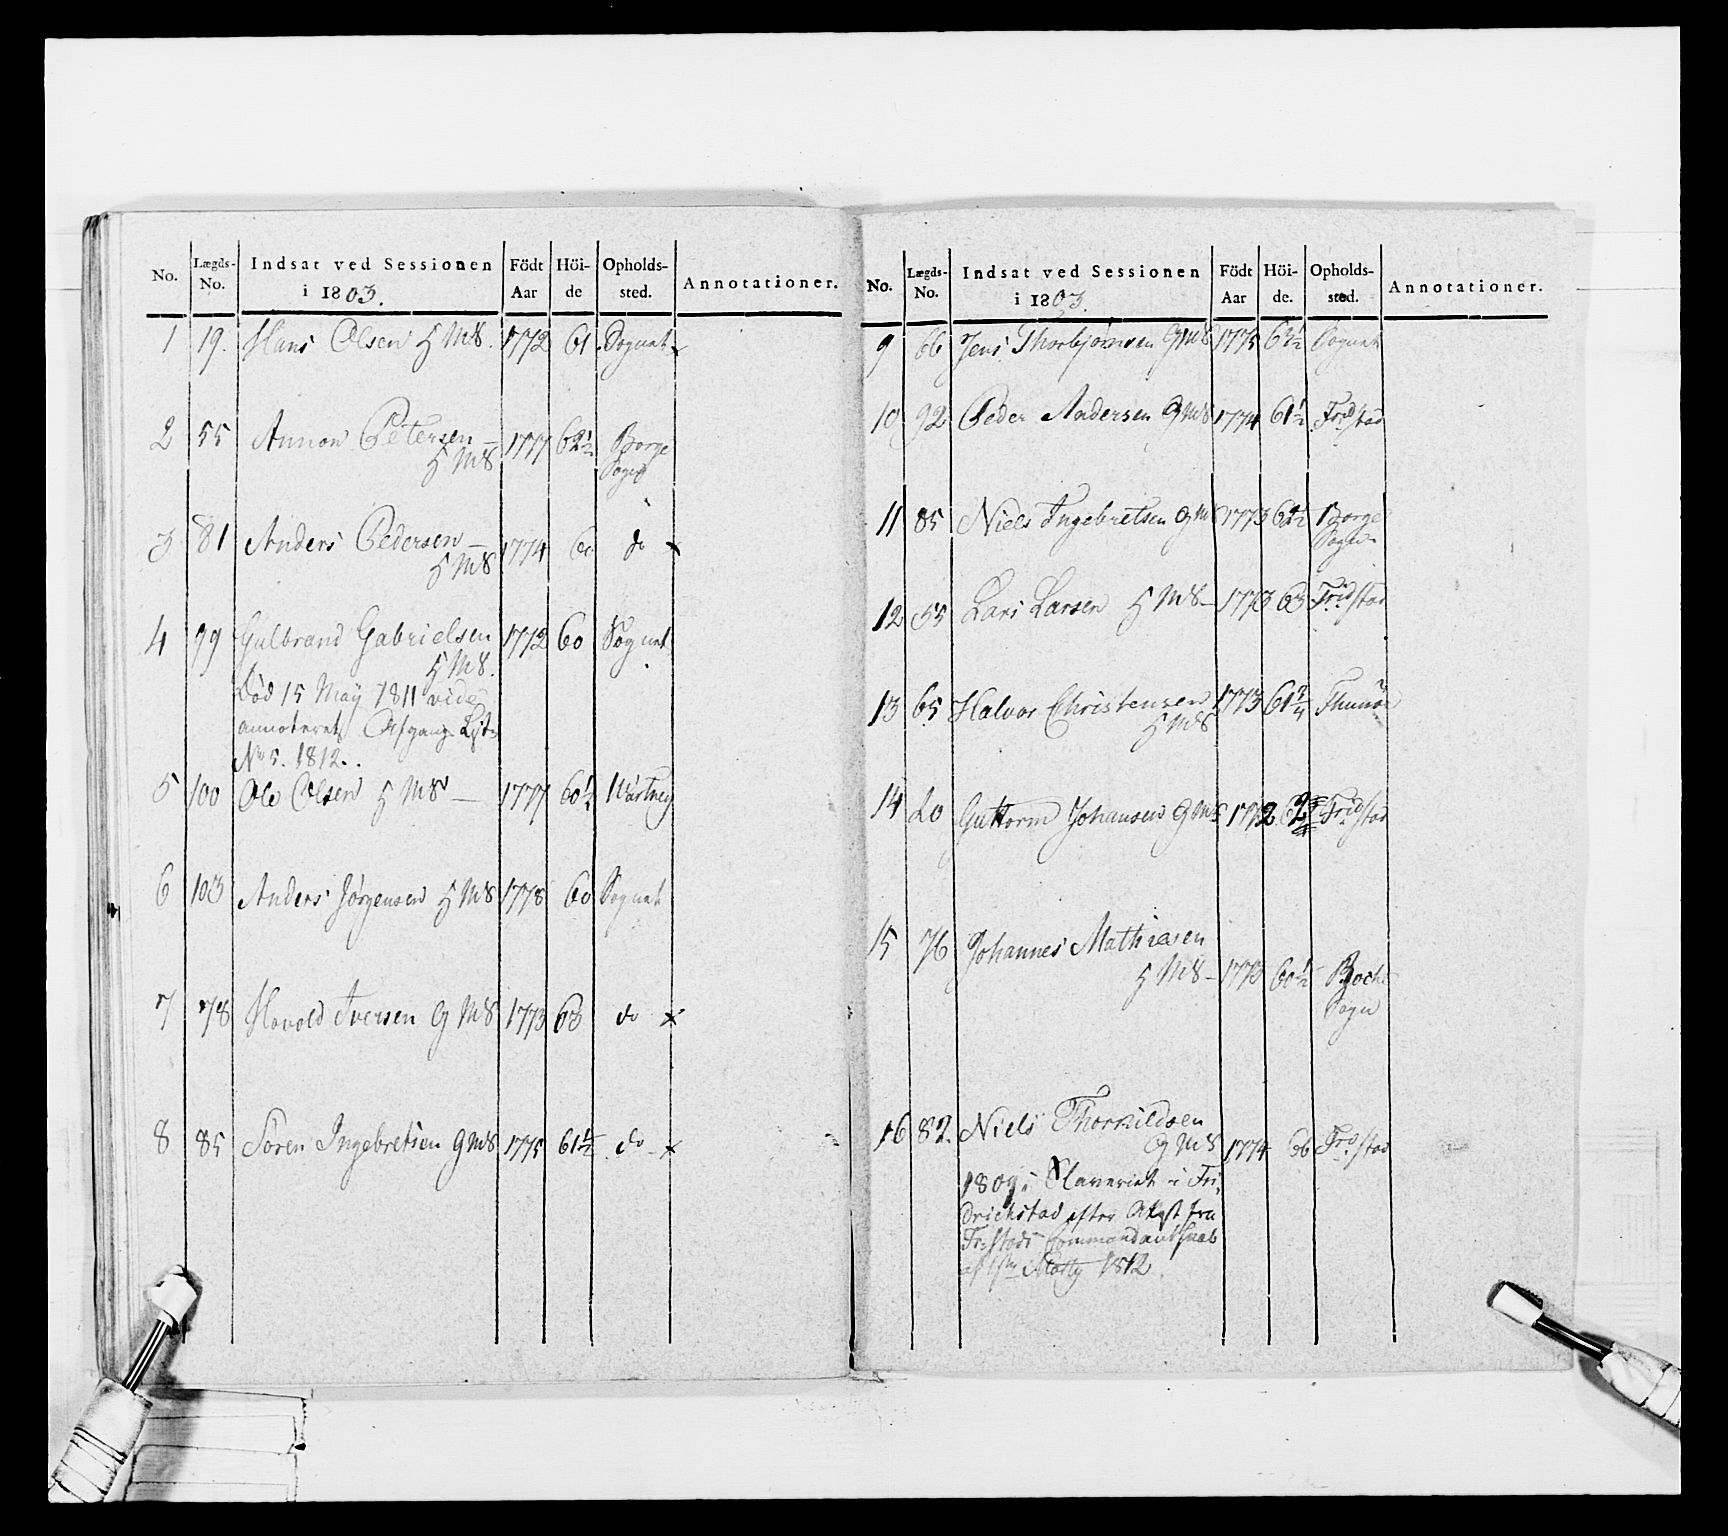 No. Lægds-No. Indsat ved Sessionen i 1803. Födt Aar Höi-de Opholds-sted. Annotationer.
1 19. Hans Olsen H M8. 1772 61 Sognet x
2 55 Amon Petersen – 1777 62½ Borge
H M8 Sogn
3 81 Anders Pedersen – 1774 60 do x
H M8
4 99 Gulbrand Gabrielsen 1772 60 Sognet
H M8.
Död 15 May 1811 vide
annoteret Afgangs List
No 5. 1812.
5 100 Ole Olsen H M8 – 1777 60½
6 103 Anders Jörgensen H M8 1778 60 Sognet
7 78 Havold Iversen G M8 1773 63 do x
8 85 Sören Ingebretsen G M8 1775 61½ do x
No. Lægds-No. Indsat ved Sessionen i 1803 Födt Aar Höi-de. Opholds-sted. Annotationer.
9 66 Jens Thorbjørnsen G M8 1775 Sognet
10 92 Peder Andersen G M8 1774 61½ Fridstad
11 85 Niels Ingebretsen G M8 1773 62½ Borge
Sogn
12 55 Lars Larsen H M8 – 1773 63 Fridstad
13 65 Halvor Christensen 1773 61¾ Thunöe
H M8
14 20 Guttorm Johansen G M8 1772 Fridstad
15 76 Johannes Mathiasen
H M8 – 1773 60½
Sogn
16 82. Niels Thorkildsen
G M8 1774 Frstad
1809 i Slaveriet i Fri-
drichstad efter Attest fra
Fr:stads Commandantskab
af 1812.